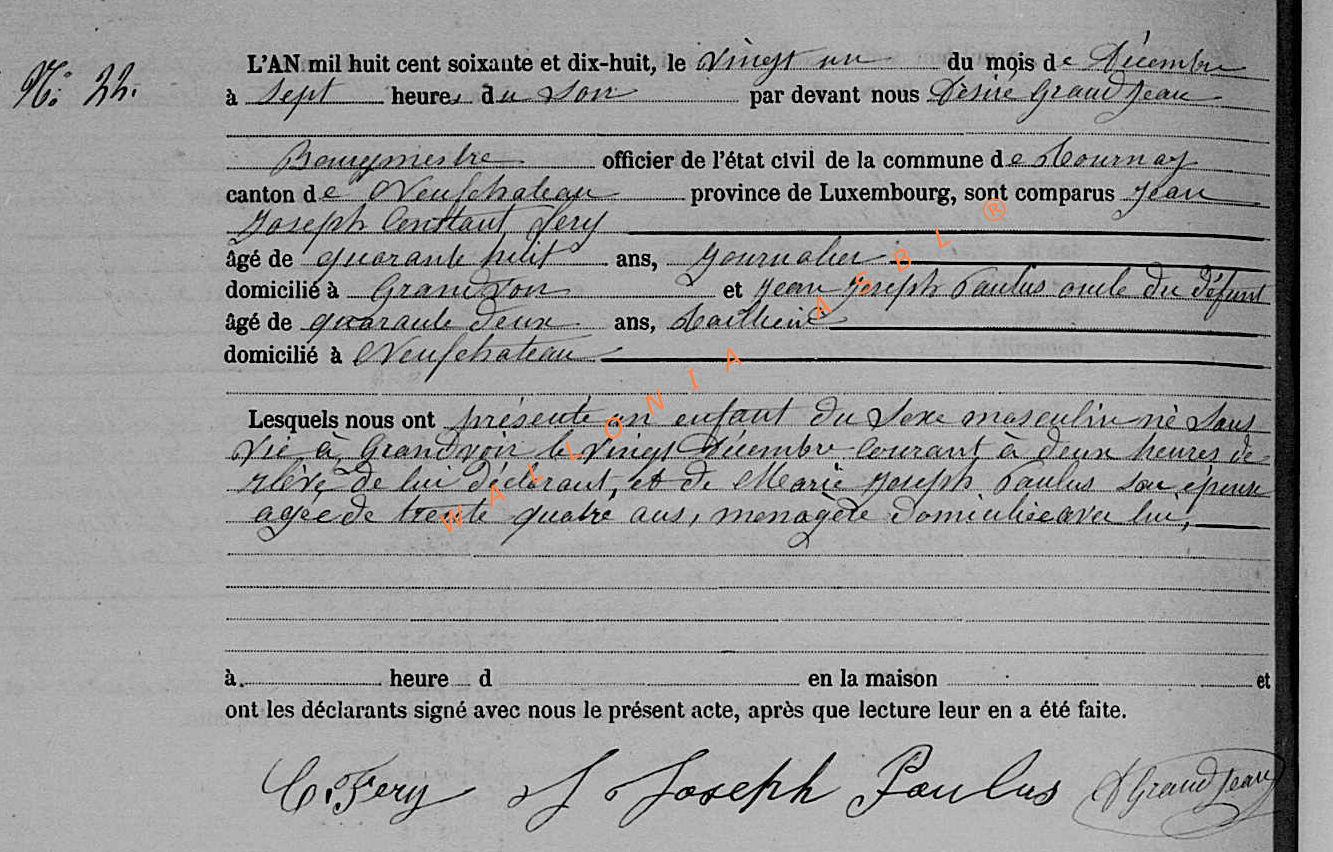 N.° 22.
L'AN mil huit cent soixante et dix-huit, le vingt un du mois de Décembre
à sept heures du Soir par devant nous Désiré GrandJean
Bourgmestre officier de l'état civil de la commune de Tournay
canton de Neufchateau province de Luxembourg, sont comparus Jean
Joseph Constant Fery
âgé de quarante huit ans, Journalier
domicilié à Grandvoir et Jean Joseph Paulus oncle du défunt
âgé de quarante deux ans,
domicilié à Neufchateau
Lesquels nous ont présenté un enfant du sexe masculin né sans
vie à Grandvoir le vingt Décembre courant à deux heures de
relévé de lui déclarant, et de Marie Joseph Paulus son épouse
agée de trente quatre ans, menagère domiciliée avec lui,
à heure d en la maison et
ont les déclarants signé avec nous le présent acte, après que lecture leur en a été faite.
C. Fery J Joseph Paulus D GrandJean
WALLONIA ASBL ®